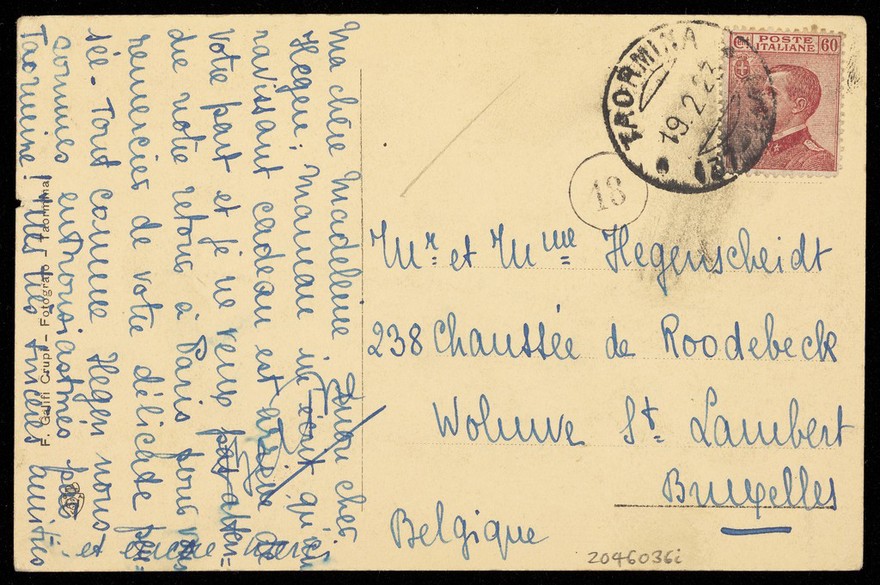 Ma chère Madeleine mon cher
Hegen, Maman m'écrit qu'un
ravissant cadeau est arrivé de
votre part et je ne veux pas atten-
dre notre retour à Paris pour vous
remercier de votre délicate pen-
sée - Tout comme Hegen nous
sommes enthousiasmés par
Taormine! Mille très sincères amitiés
et encore merci
F. Galifi Crupi - Fotografo - Taormina
POSTE
ITALIANE 60
TAORMINA
19.2.23
18
Mr. et Mme Hegenscheidt
238 Chaussée de Roodebeck
Woluwe St. Lambert
Bruxelles
Belgique
2046036i